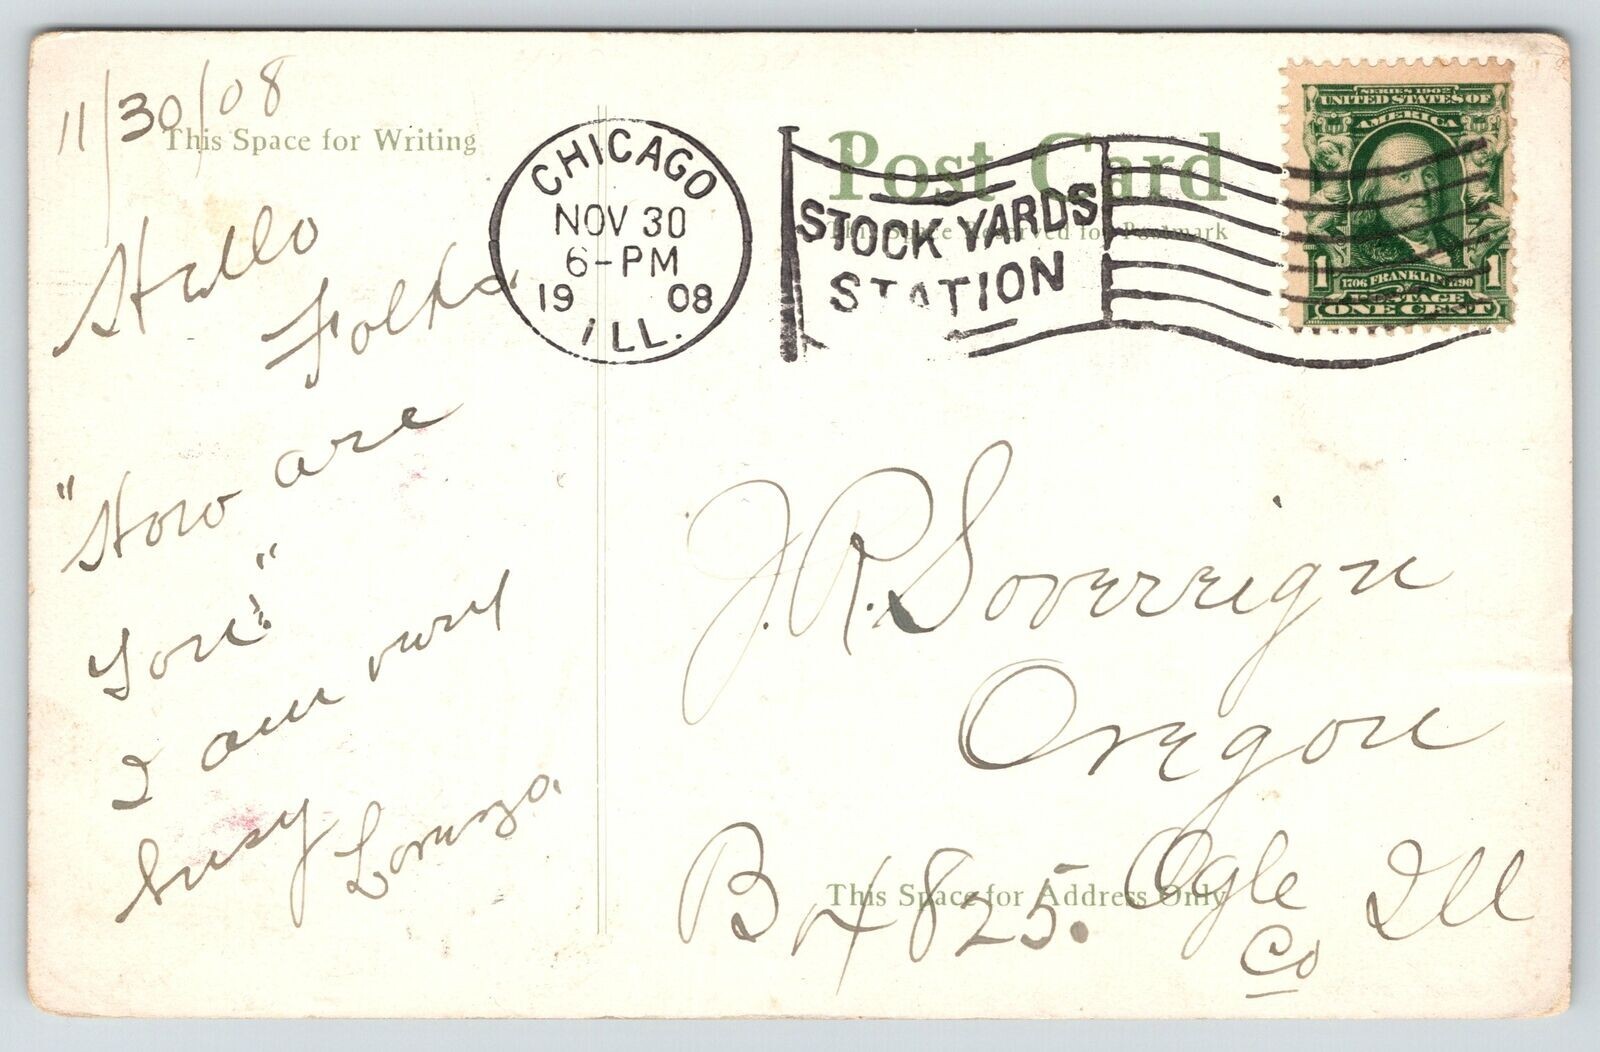 11/30/08
This Space for Writing
Hello
Folks.
"How are
You?"
I am very
busy
Lorenzo.
CHICAGO
NOV 30
6-PM
19 08
ILL.
STOCK YARDS
STATION
Post Card
This Space Reserved for Postmark
SERIES 1902
UNITED STATES OF
AMERICA
1 FRANKLIN 1
1706 1790
POSTAGE
ONE CENT
J. R. Sovereign
Oregon
B 4825. Ogle Ill
Co
This Space for Address Only